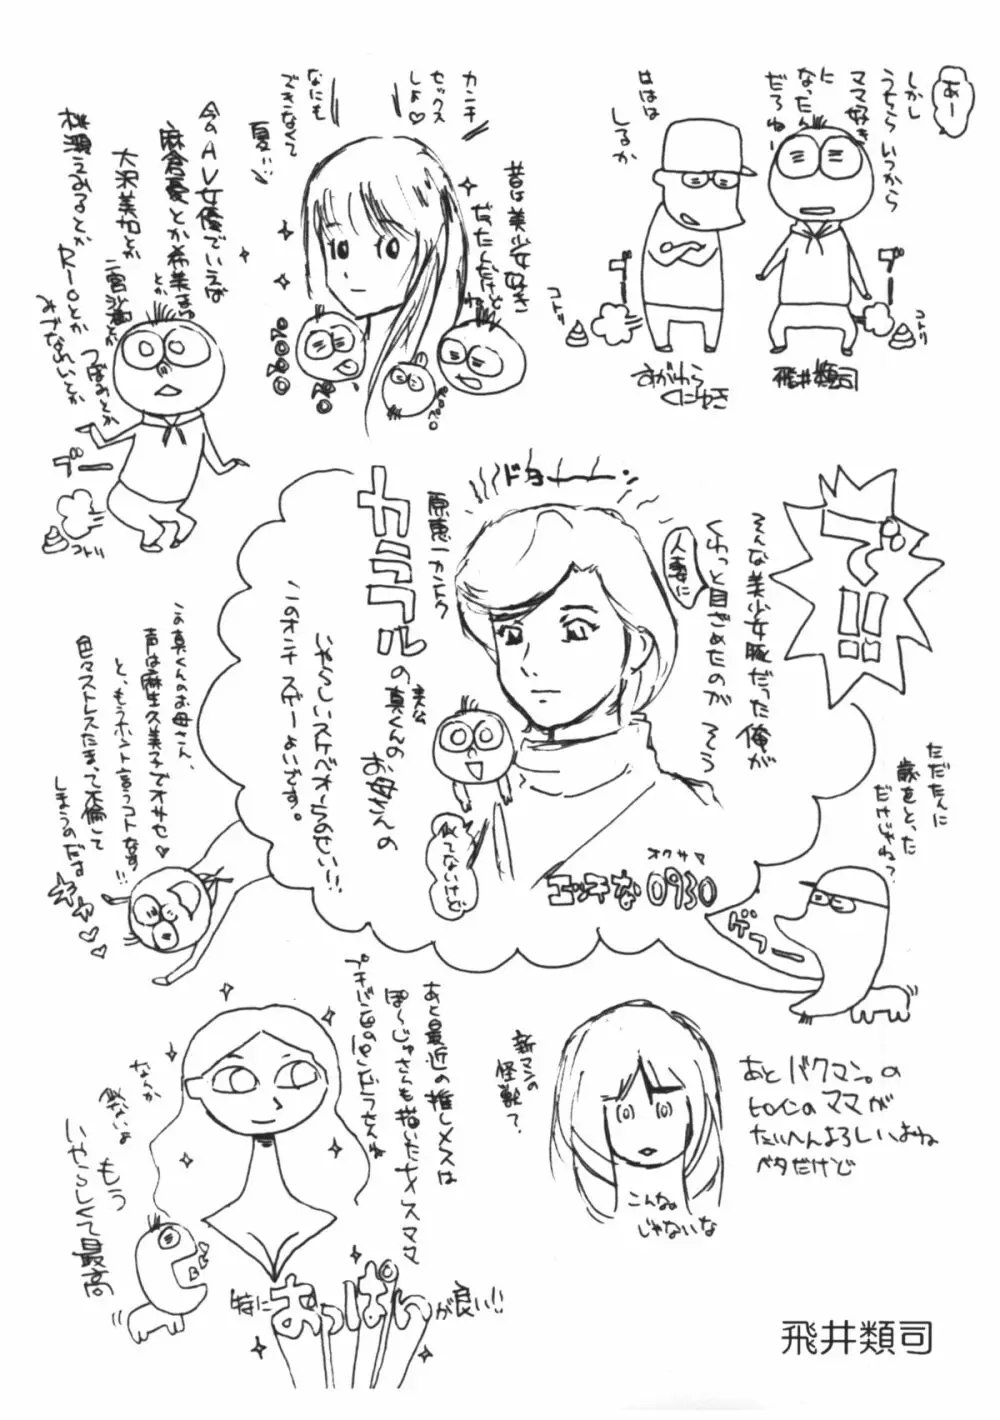 あー
しかし
うちらいつから
ママ好き
に
なったん
だろねー
ははは
しるか
ブー
コトリ
ブー
コトリ
すがわら
くにゆき
飛井類司
昔は美少女好き
だったんだけど
ね
カンチ
セックス
しよ♡
なにも
できなくて
夏!!
ペロペロ
今のAV女優でいえば
麻倉憂とか希美まゆ
とか
大沢美加とか
二宮沙樹とか
つぼみとか
桃瀬えみるとか
Rioとか
みづなれいとか
ブー
コトリ
で!!
そんな美少女豚だった俺が
くわっと目ざめたのがそう
人妻に
ドヨーーーン
原恵一カントク
カラフルの
主人公
真くんの
お母さんの
いやらしいスケベオーラのせい!!
このオンナ スゲーよいです。
似てないけど
エッチな0930
オクサマ
この真くんのお母さん、
声は麻生久美子でオサセ♡
と、もうホント言うコトなす!!
色々ストレスたまって不倫して
しまうのだな
ただたんに
歳をとった
だけじゃね?
ゲフーー
あと最近の推しメスは
ぽ〜じゅさんも描いたメスママ
プキバン母のパンドラさんね
なんか
似ないよ もう
いやらしくて最高
特におっぱいが良い!!
新マンの
怪獣?
こんな。
じゃないな
あとバクマン。の
ヒロインのママが
たいへんよろしいよね
ベタだけど
飛井類司